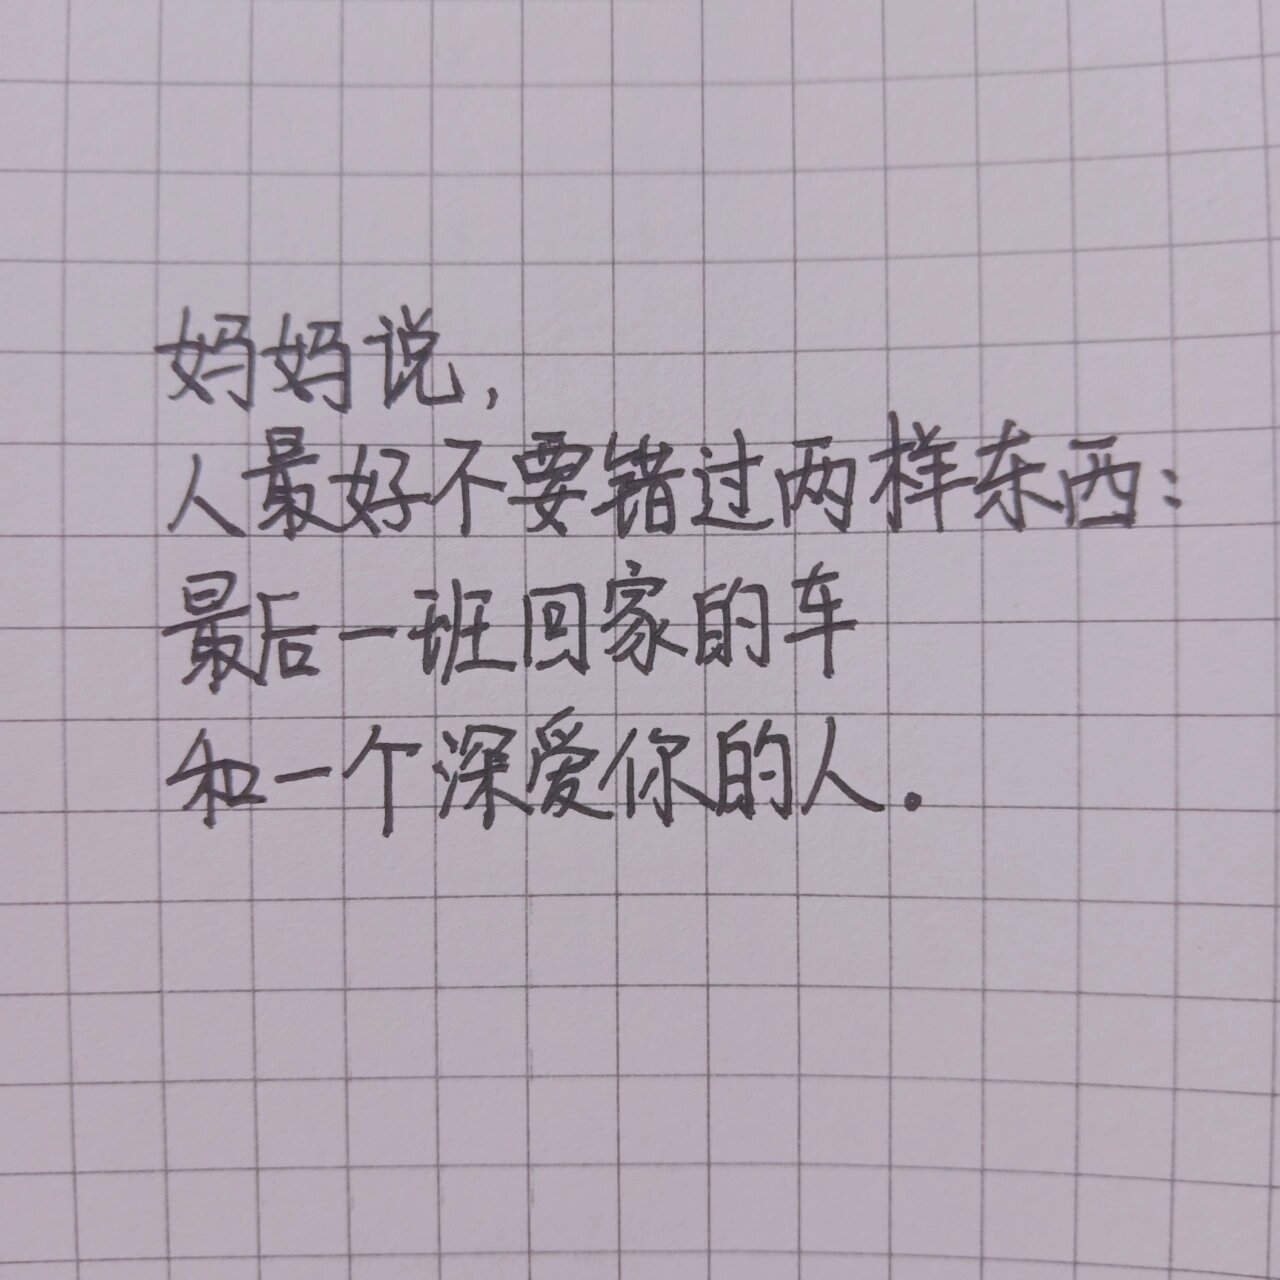 妈妈说,
人最好不要错过两样东西:
最后一班回家的车
和一个深爱你的人.